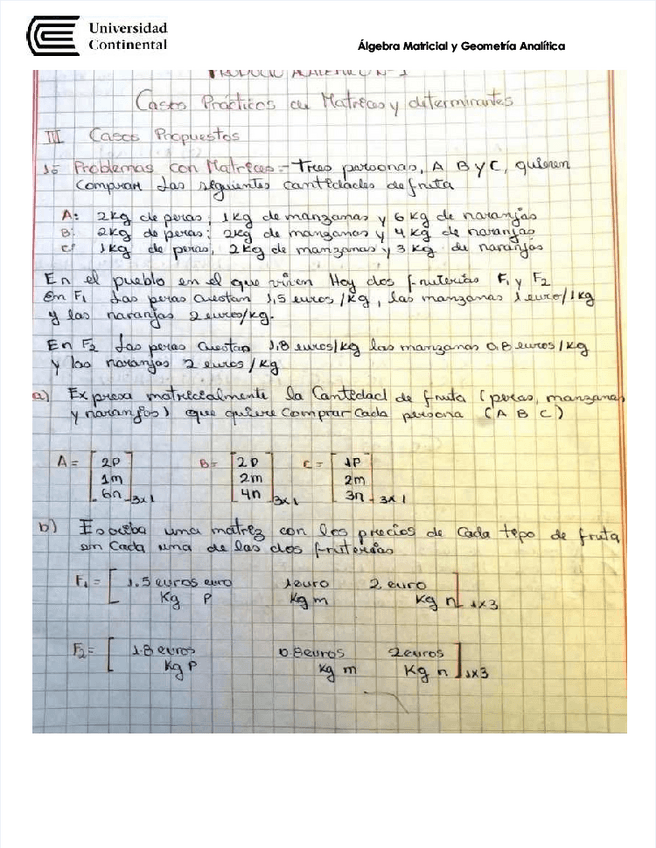 Universidad
Continental
Álgebra Matricial y Geometría Analítica
Casos Prácticos de Matrices y determinantes
III Casos Propuestos
1º Problemas con Matrices.- Tres personas, A B y C, quieren
comprar las siguientes cantidades de fruta
A: 2kg de peras, 1kg de manzanas y 6 kg de naranjas
B: 2kg de peras; 2kg de manzanas y 4 kg de naranjas
C: 1kg de peras, 2kg de manzanas y 3 kg de naranjas
En el pueblo en el que viven Hay dos fruterias F1 y F2
en F1 las peras cuestan 1,5 euros /kg, las manzanas 1 euro/1kg
y las naranjas 2 euros/kg.
En F2 las peras cuestan 1,8 euros/kg las manzanas 0,8 euros/kg
y las naranjas 2 euros/kg
a) Expresa matricialmente la Cantidad de fruta (peras, manzanas
y naranjas) que quiere comprar cada persona (A B C)
A = [ 2P B= [ 2P C = [ 1P
1m 2m 2m
6n ] 3x1 4n ] 3x1 3n ] 3x1
b) Escriba una matriz con los precios de cada tipo de fruta
en cada una de las dos fruterias
F1 = [ 1.5 euros euro 1euro 2 euro
Kg P Kg m Kg n ] 1x3
F2 = [ 1.8 euros 0.8euros 2euros
Kg P Kg m Kg n ] 1x3